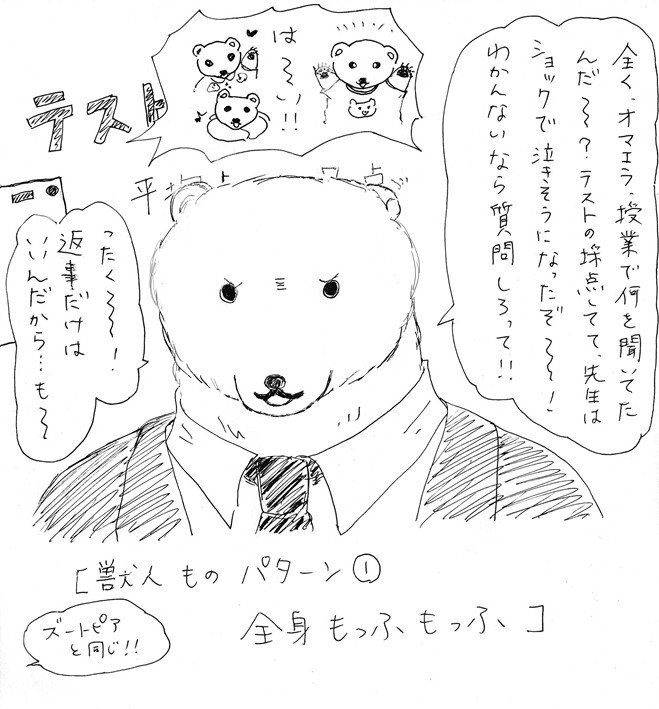 全く、オマエラ、授業で何を聞いてた
んだ〜〜?テストの採点してて、先生は
ショックで泣きそうになったぞ〜〜!
わかんないなら質問しろって!!
は〜い!!
テスト
平均
点
ったく〜〜!
返事だけは
いいんだから…も〜
[獣人ものパターン①
全身もっふもっふ]
ズートピア
と同じ!!